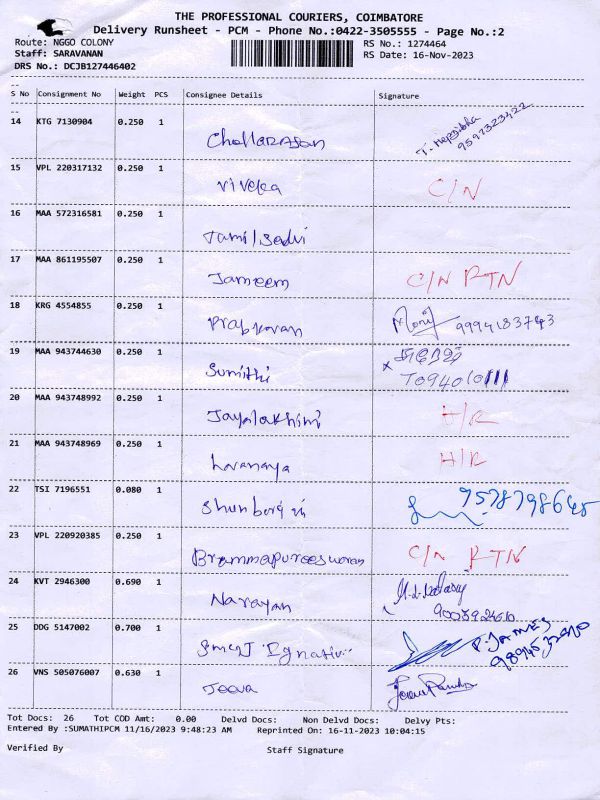 THE PROFESSIONAL COURIERS, COIMBATORE
Delivery Runsheet - PCM - Phone No.:0422-3505555 - Page No.:2
Route: NGGO COLONY RS No.: 1274464
Staff: SARAVANAN RS Date: 16-Nov-2023
DRS No.: DCJB127446402
S No Consignment No Weight PCS Consignee Details Signature
14 KTG 7130904 0.250 1 T. Hepzibha
9597323422
15 VPL 220317132 0.250 1 Viveka C/N
16 MAA 572316581 0.250 1 Tamilselvi
17 MAA 861195507 0.250 1 Jameem C/N RTN
18 KRG 4554855 0.250 1 Prabkaran 9994183743
19 MAA 943744630 0.250 1 Sumithi
20 MAA 943748992 0.250 1 Jayalakhimi H/R
21 MAA 943748969 0.250 1 Lavanaya H/R
22 TSI 7196551 0.080 1 9578798645
23 VPL 220920385 0.250 1 Brammapureeswaran C/N RTN
24 KVT 2946300 0.690 1 Narayan
25 DDG 5147002 0.700 1 P. JAMES
26 VNS 505076007 0.630 1 Jeeva
Tot Docs: 26 Tot COD Amt: 0.00 Delvd Docs: Non Delvd Docs: Delvy Pts:
Entered By :SUMATHIPCM 11/16/2023 9:48:23 AM Reprinted On: 16-11-2023 10:04:15
Verified By Staff Signature